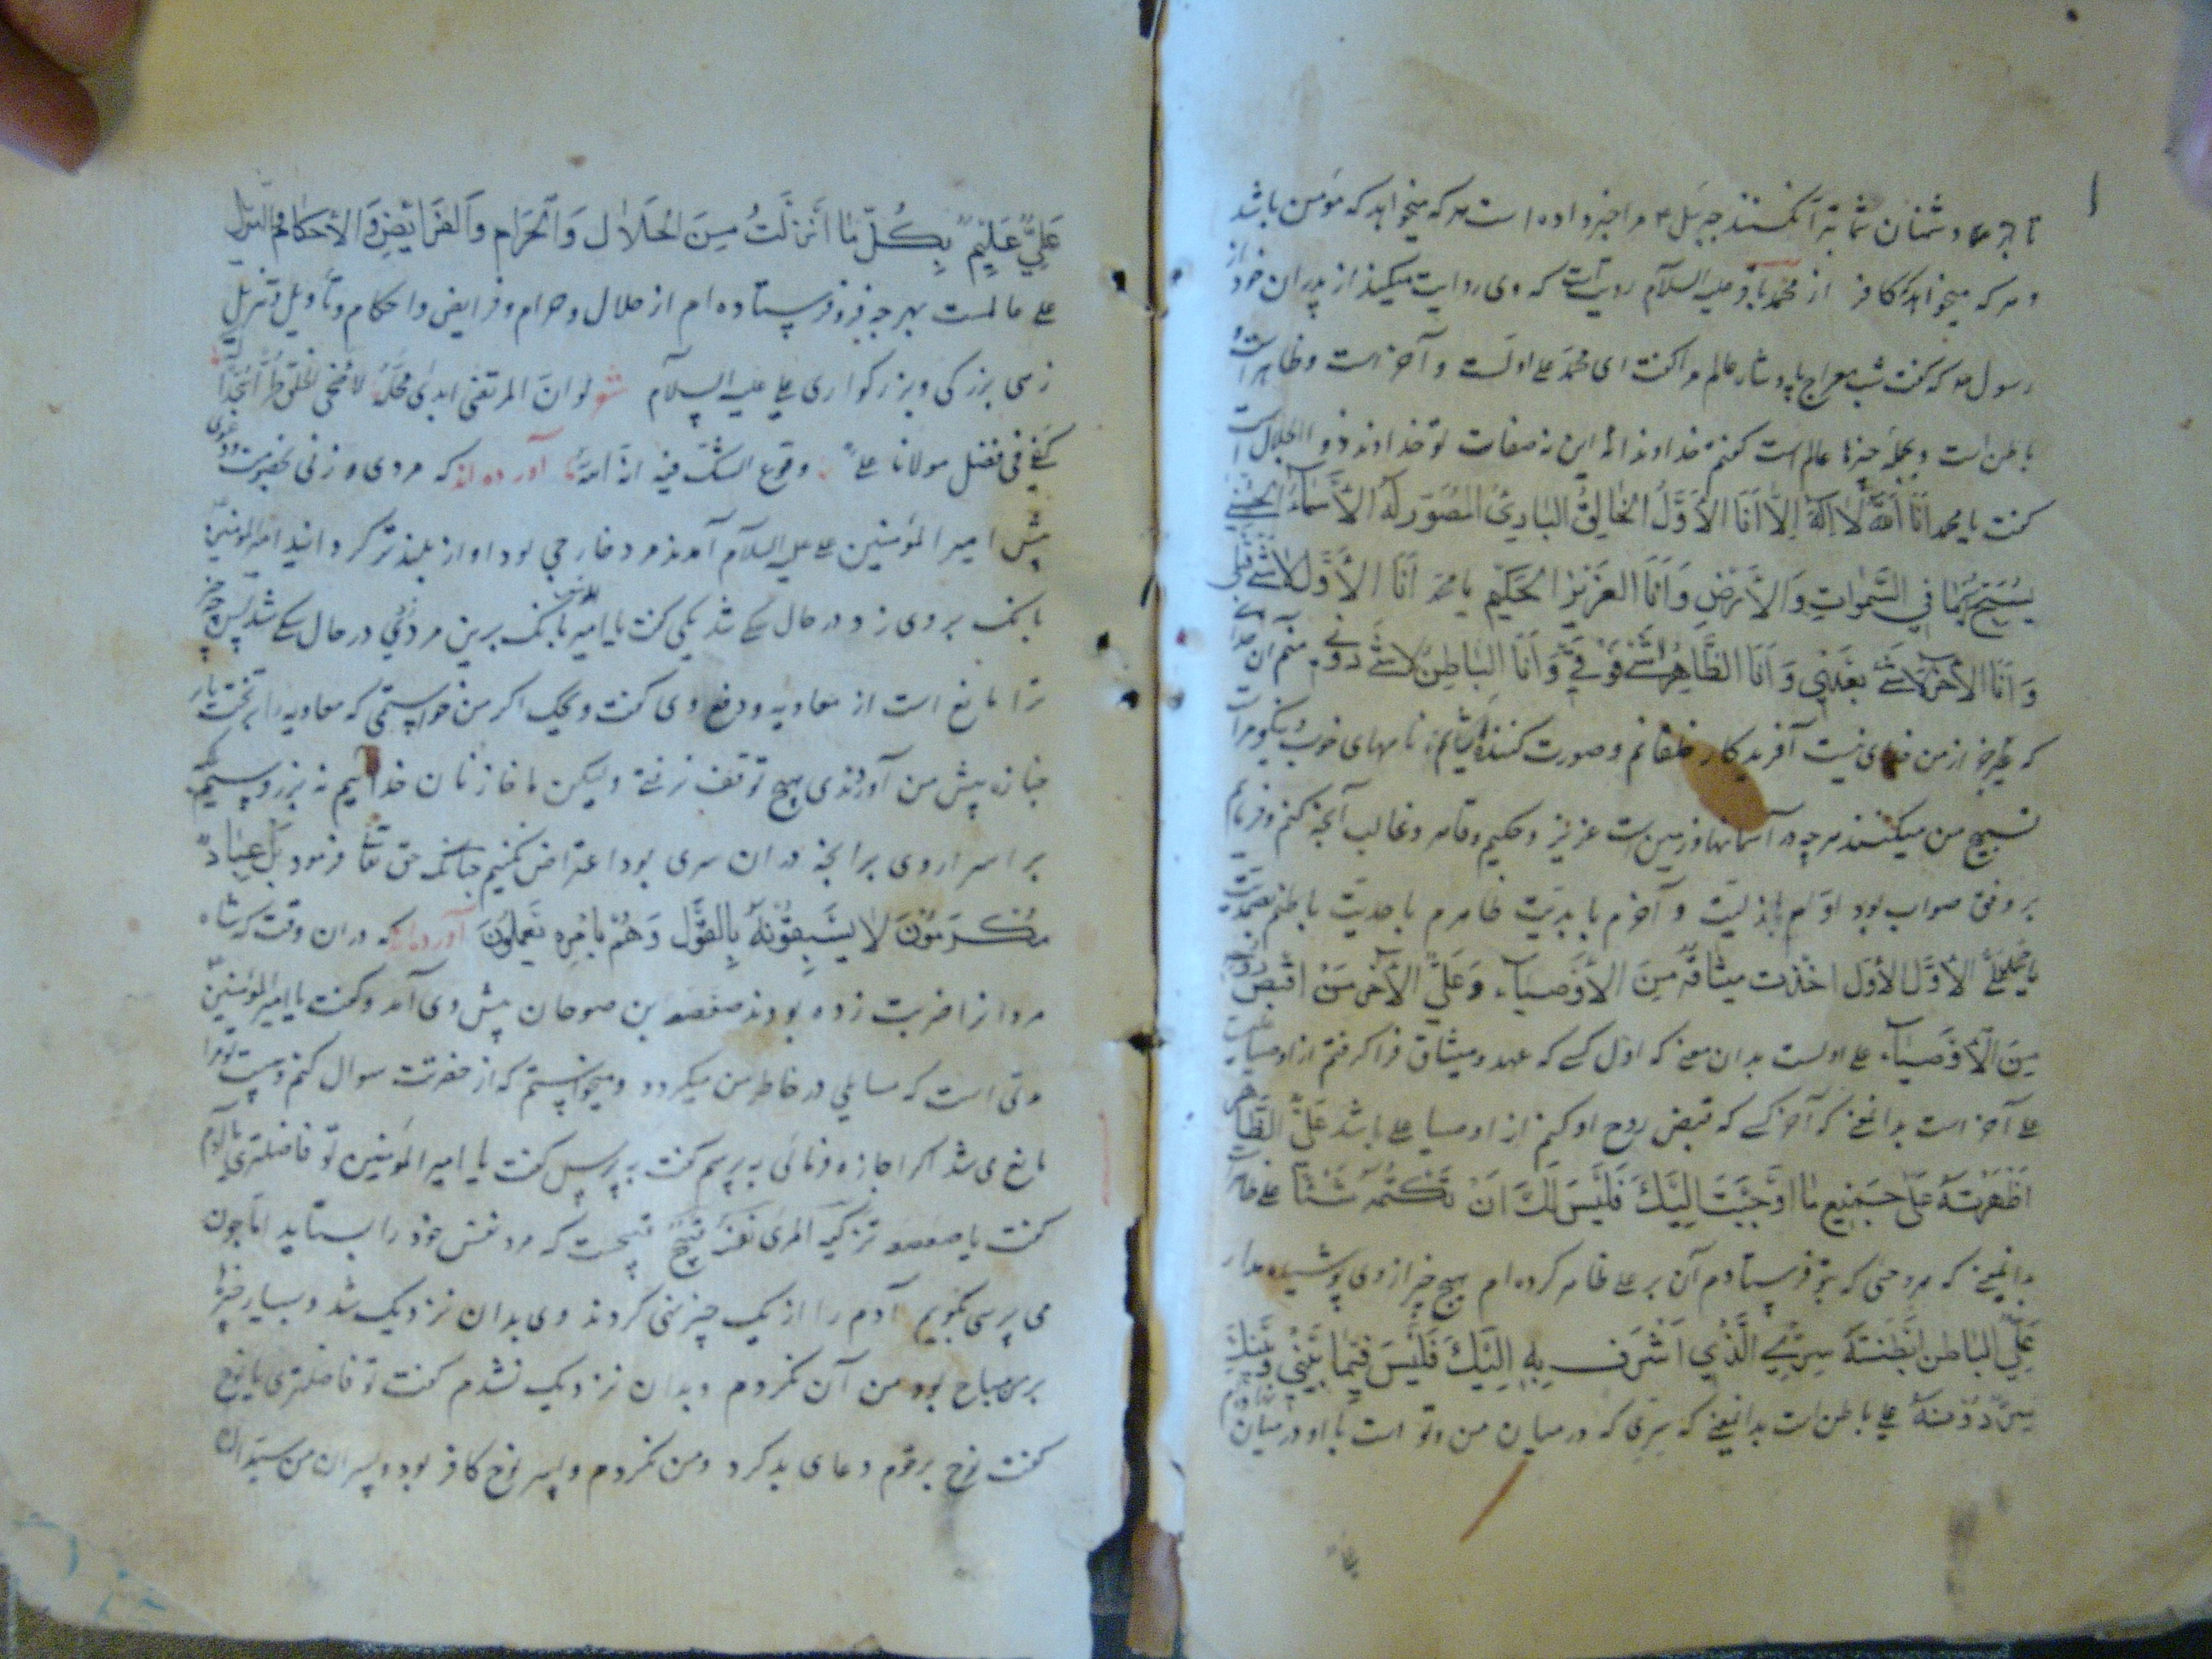 و دشمنان شما بتر آنکسند جبرئیل مرا خبر داده است هر که میخواهد که مؤمن باشد
و هر که میخواهد کافر از محمد باقر علیه السلام روایتست که وی روایت میکند از پدران خود از
رسول که گفت شب معراج پادشاه عالم مرا گفت ای محمد علی اولست و آخر است و ظاهر است و
باطن است و بجمله چیزها عالم است گفتم خداوندا نه این نه صفات تو خداوند ذو الجلال است
گفت یا محمد اَنَا اللّٰهُ لَا اِلٰهَ اِلَّا اَنَا الأَوَّلُ الخَالِقُ البَارِئُ المُصَوِّرُ لَهُ الأَسْمَاءُ الحُسْنٰی
یُسَبِّحُ لِی مَا فِی السَّمٰوَاتِ وَالأَرْضِ وَاَنَا العَزِیزُ الحَکِیمُ یا محمد اَنَا الأَوَّلُ لَا شَیْءَ قَبْلِی
وَاَنَا الأٰخِرُ لَا شَیْءَ بَعْدِی وَاَنَا الظَّاهِرُ لَا شَیْءَ فَوْقِی وَاَنَا البَاطِنُ لَا شَیْءَ دُونِی منم آن خدا
که بغیر از من خدای نیست آفریدکار خلقانم و صورت کننده ایشانم نامهای خوب نیکو مراست
تسبیح من میکنند هر چه در آسمانها و زمین است عزیز و حکیم و قاهر و غالب آنچه کنم و فرمایم
بر وفق صواب بود اولم بازلیت و آخرم بابدیت ظاهرم باحدیت باطنم بصمدیت
یا محمد عَلِیٌّ الأَوَّلُ الأَوَّلُ اَخَذْتُ مِیثَاقَهُ مِنَ الأَوْصِیَاءِ وَعَلِیٌّ الأٰخِرُ مَنْ اَقْبِضُ رُوحَهُ
مِنَ الأَوْصِیَاءِ علی اولست بدان معنی که اول کسی که عهد و میثاق فرا کرفتم از اوصیا علیست
علی آخر است بدانمعنی که آخر کسی که قبض روح او کنم از اوصیا علی باشد عَلِیٌّ الظَّاهِرُ
اَظْهَرْتُهُ عَلٰی جَمِیعِ مَا اَوْحَیْتُ اِلَیْکَ فَلَیْسَ لَکَ اَنْ تَکْتُمَهُ شَیْئًا علی ظاهر
بدانمعنی که هر وحی که بتو فرستادم آن بر علی ظاهر کرده ام هیچ چیز از وی پوشیده مدار
عَلِیٌّ البَاطِنُ اَبْطَنْتُهُ سِرِّیَ الَّذِی اَشْرَفَ بِهِ اِلَیْکَ فَلَیْسَ فِیمَا بَیْنِی وَبَیْنَکَ
سِرٌّ دُونَهُ علی باطن است بدانمعنی که سری که در میان من و تو است با او در میان
عَلِیٌّ عَلِیمٌ بِکُلِّ مَا اَنْزَلْتُ مِنَ الحَلَالِ وَالحَرَامِ وَالفَرَائِضِ وَالأَحْکَامِ والتنزیل
علی عالمست بهر چه فرو فرستاده ام از حلال و حرام و فرایض و احکام و تأویل و تنزیل
زهی بزرکی و بزرکواری علی علیه السلام شعر لو انّ المرتضی ابدی محلّه لاضحی الخلق طرّا سجّدا له
کفی فی فضل مولانا علی وقوع الشک فیه انّه الله آورده اند که مردی و زنی بخصومت
پیش امیر المؤمنین علی علیه السلام آمدند مرد خارجی بود آواز بلندتر کردانید امیر المؤمنین
بانک بر وی زد در حال سک شد یکی کفت یا امیر المؤمنین بانک برین مرد زدی در حال سک شد پس چه چیز
ترا مانع است از معاویه و دفع وی کفت ویحک اکر من خواستمی که معاویه را بر تخت
پیش من آوردندی هیچ توقف نرفتی ولیکن ما خازنان خداییم نه بر زر و سیم
بر اسرار وی بر آنچه در آن سری بود اعتراض نکنیم چنانک حق تعالی فرمود بَلْ عِبَادٌ
مُکْرَمُونَ لَا یَسْبِقُونَهُ بِالقَوْلِ وَهُمْ بِاَمْرِهِ یَعْمَلُونَ آورده اند که در آن وقت که شاه
مردانرا ضربت زده بودند صعصعه بن صوحان پیش وی آمد و کفت یا امیر المؤمنین
مدتی است که مسایلی در خاطر من میکردد و میخواستم که از حضرتت سوال کنم هیبت تو مرا
مانع می شد اکر اجازه فرمائی بپرسم کفت بپرس کفت یا امیر المؤمنین تو فاضلتری یا آدم
کفت یا صعصعه تزکیة المرء نفسه قبیح قبیحست که مرد نفس خود را بستاید اما چون
می پرسی بکویم آدم را از یک چیز نهی کردند وی بدان نزدیک شد و بسیار چیزها
بر من مباح بود من آن نکردم و بدان نزدیک نشدم کفت تو فاضلتری یا نوح
کفت نوح بر قوم دعای بد کرد و من نکردم و پسر نوح کافر بود و پسران من سیدان